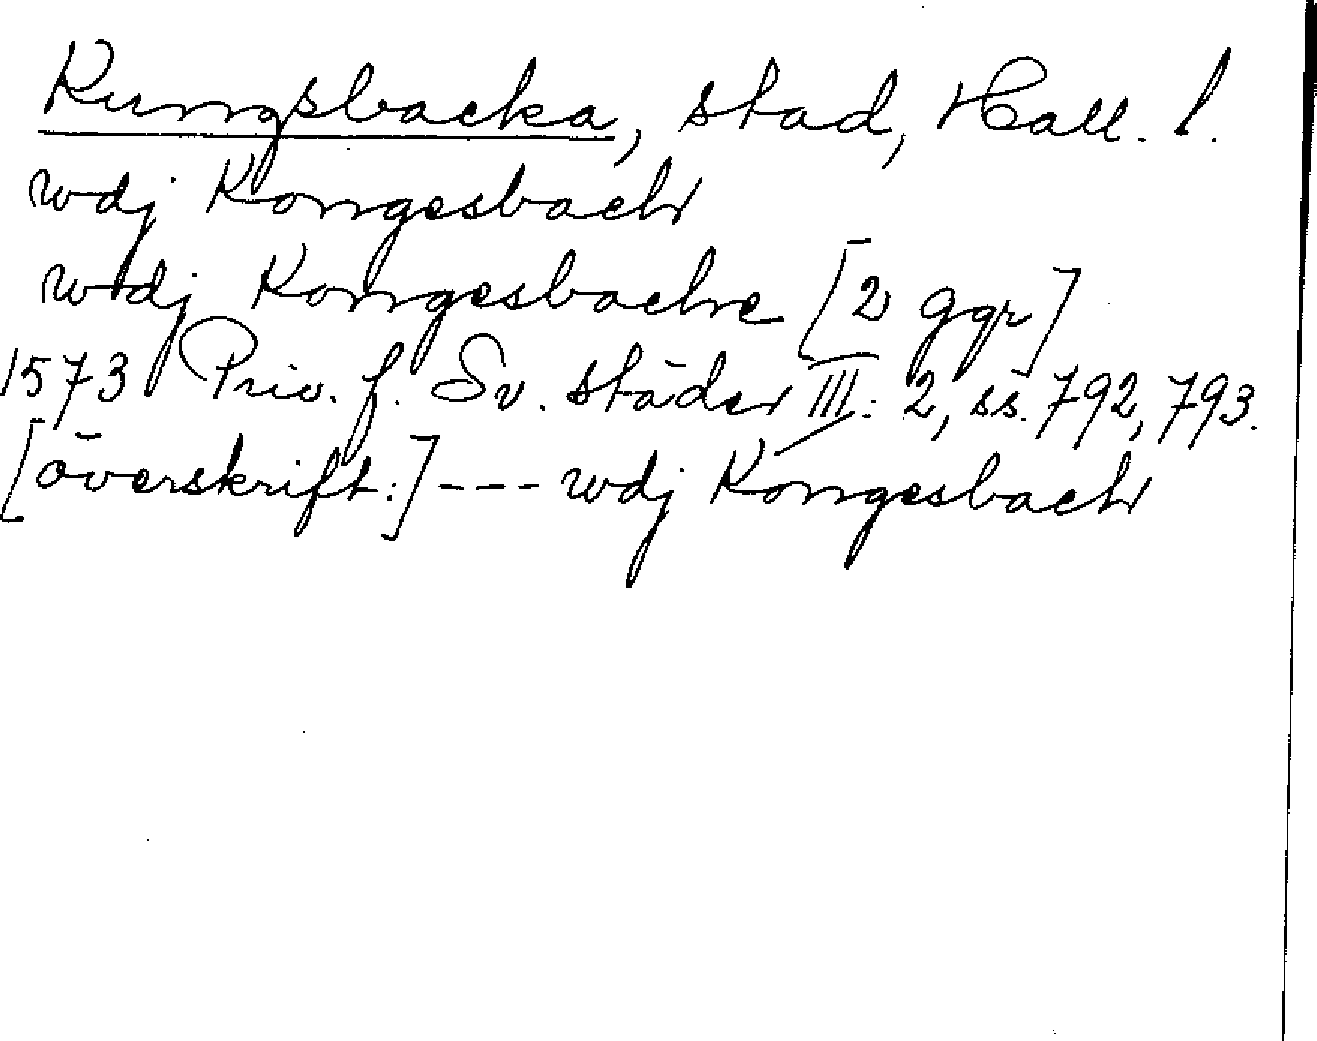 Kungsbacka, stad, Hall. l.
wdj Kongesback
wdj Kongesbacke [2 ggr]
1573 Priv. f. Sv. städer III: 2, ss. 792, 793.
[överskrift:] --- wdj Kongesback